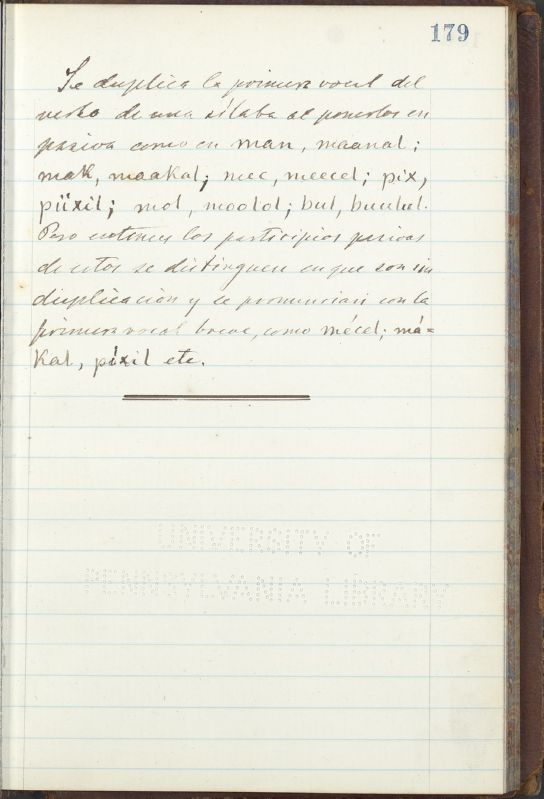 179
Se duplica la primera vocal del
verbo de una sílaba al ponerlos en
pasiva como en man, maanal;
mak, maakal; mec, meecel; pix,
piixil; mol, moolol; bul, buulul.
Pero entonces los participios pasivos
de estos se distinguen en que son sin
duplicacion y se pronuncian con la
primera vocal breve, como mécel; má=
kal, píxil etc.
UNIVERSITY OF
PENNSYLVANIA LIBRARY